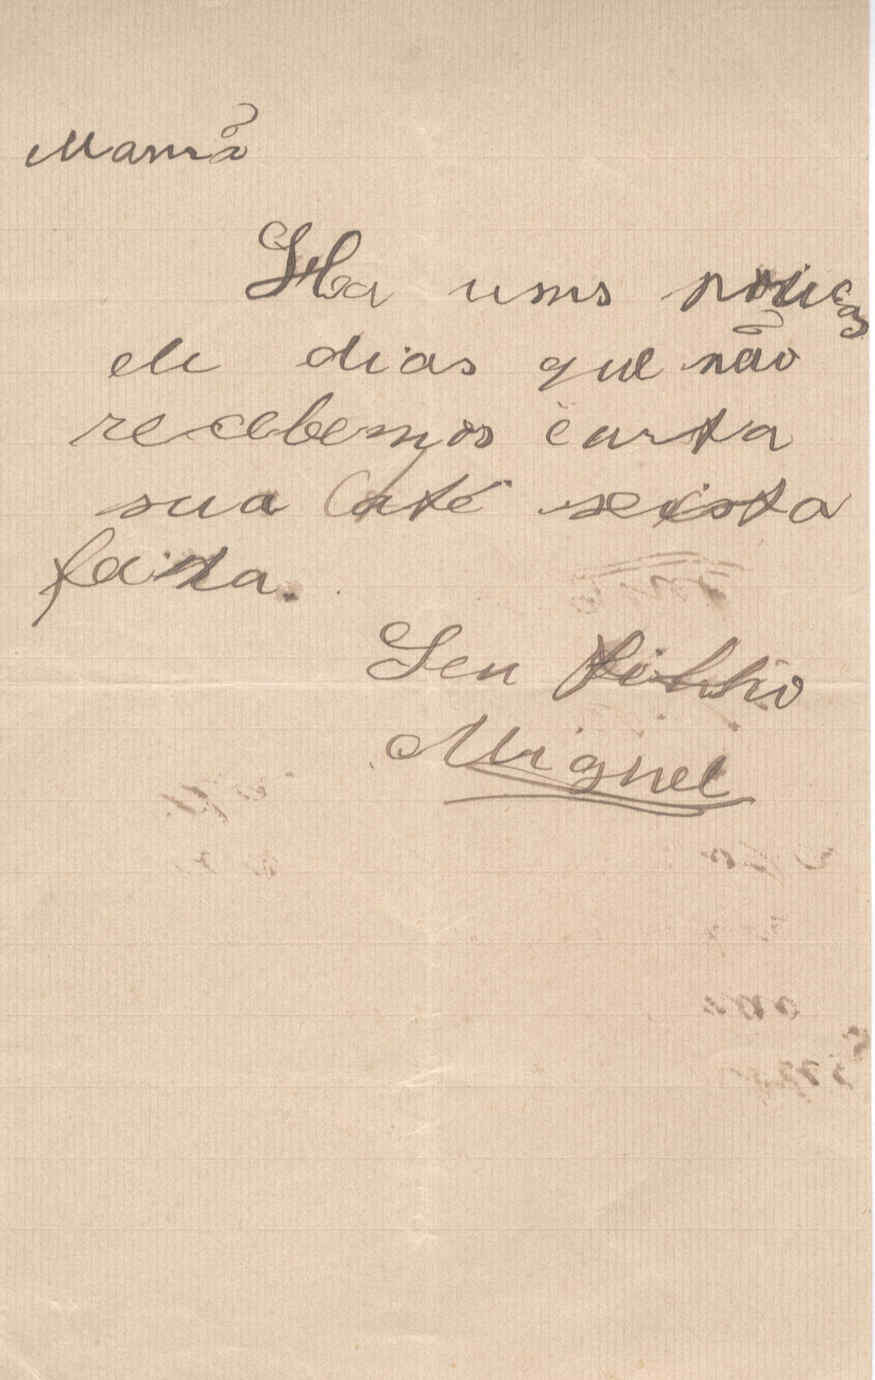 Mamã
Ha uns poucos
de dias que não
recebemos carta
sua até sexta
feira.
Seu filho
Miguel